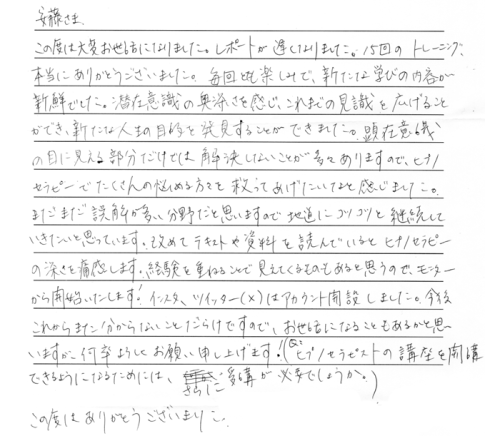 安藤さま
この度は大変お世話になりました。レポートが遅くなりました。15回のトレーニング、
本当にありがとうございました。毎回とても楽しみで、新たな学びの内容が
新鮮でした。潜在意識の奥深さを感じ、これまでの見識を広げること
ができ、新たな人生の目的を発見することができました。顕在意識
の目に見える部分だけでは解決しないことが多々ありますので、ヒプノ
セラピーでたくさんの悩める方々を救ってあげたいなと感じました。
まだまだ誤解が多い分野だと思いますので地道にコツコツと継続して
いきたいと思っています。改めてテキストや資料を読んでいるとヒプノセラピー
の深さを痛感します。経験を重ねることで見えてくるものもあると思うので、モニター
から開始いたします!インスタ、ツイッター(X)はアカウント開設しました。今後
これからまだ分からないことだらけですので、お世話になることもあるかと思
いますが、何卒よろしくお願い申し上げます!(Q:ヒプノセラピストの講座を開講
できるようになるためには、さらに受講が必要でしょうか。)
この度はありがとうございました。